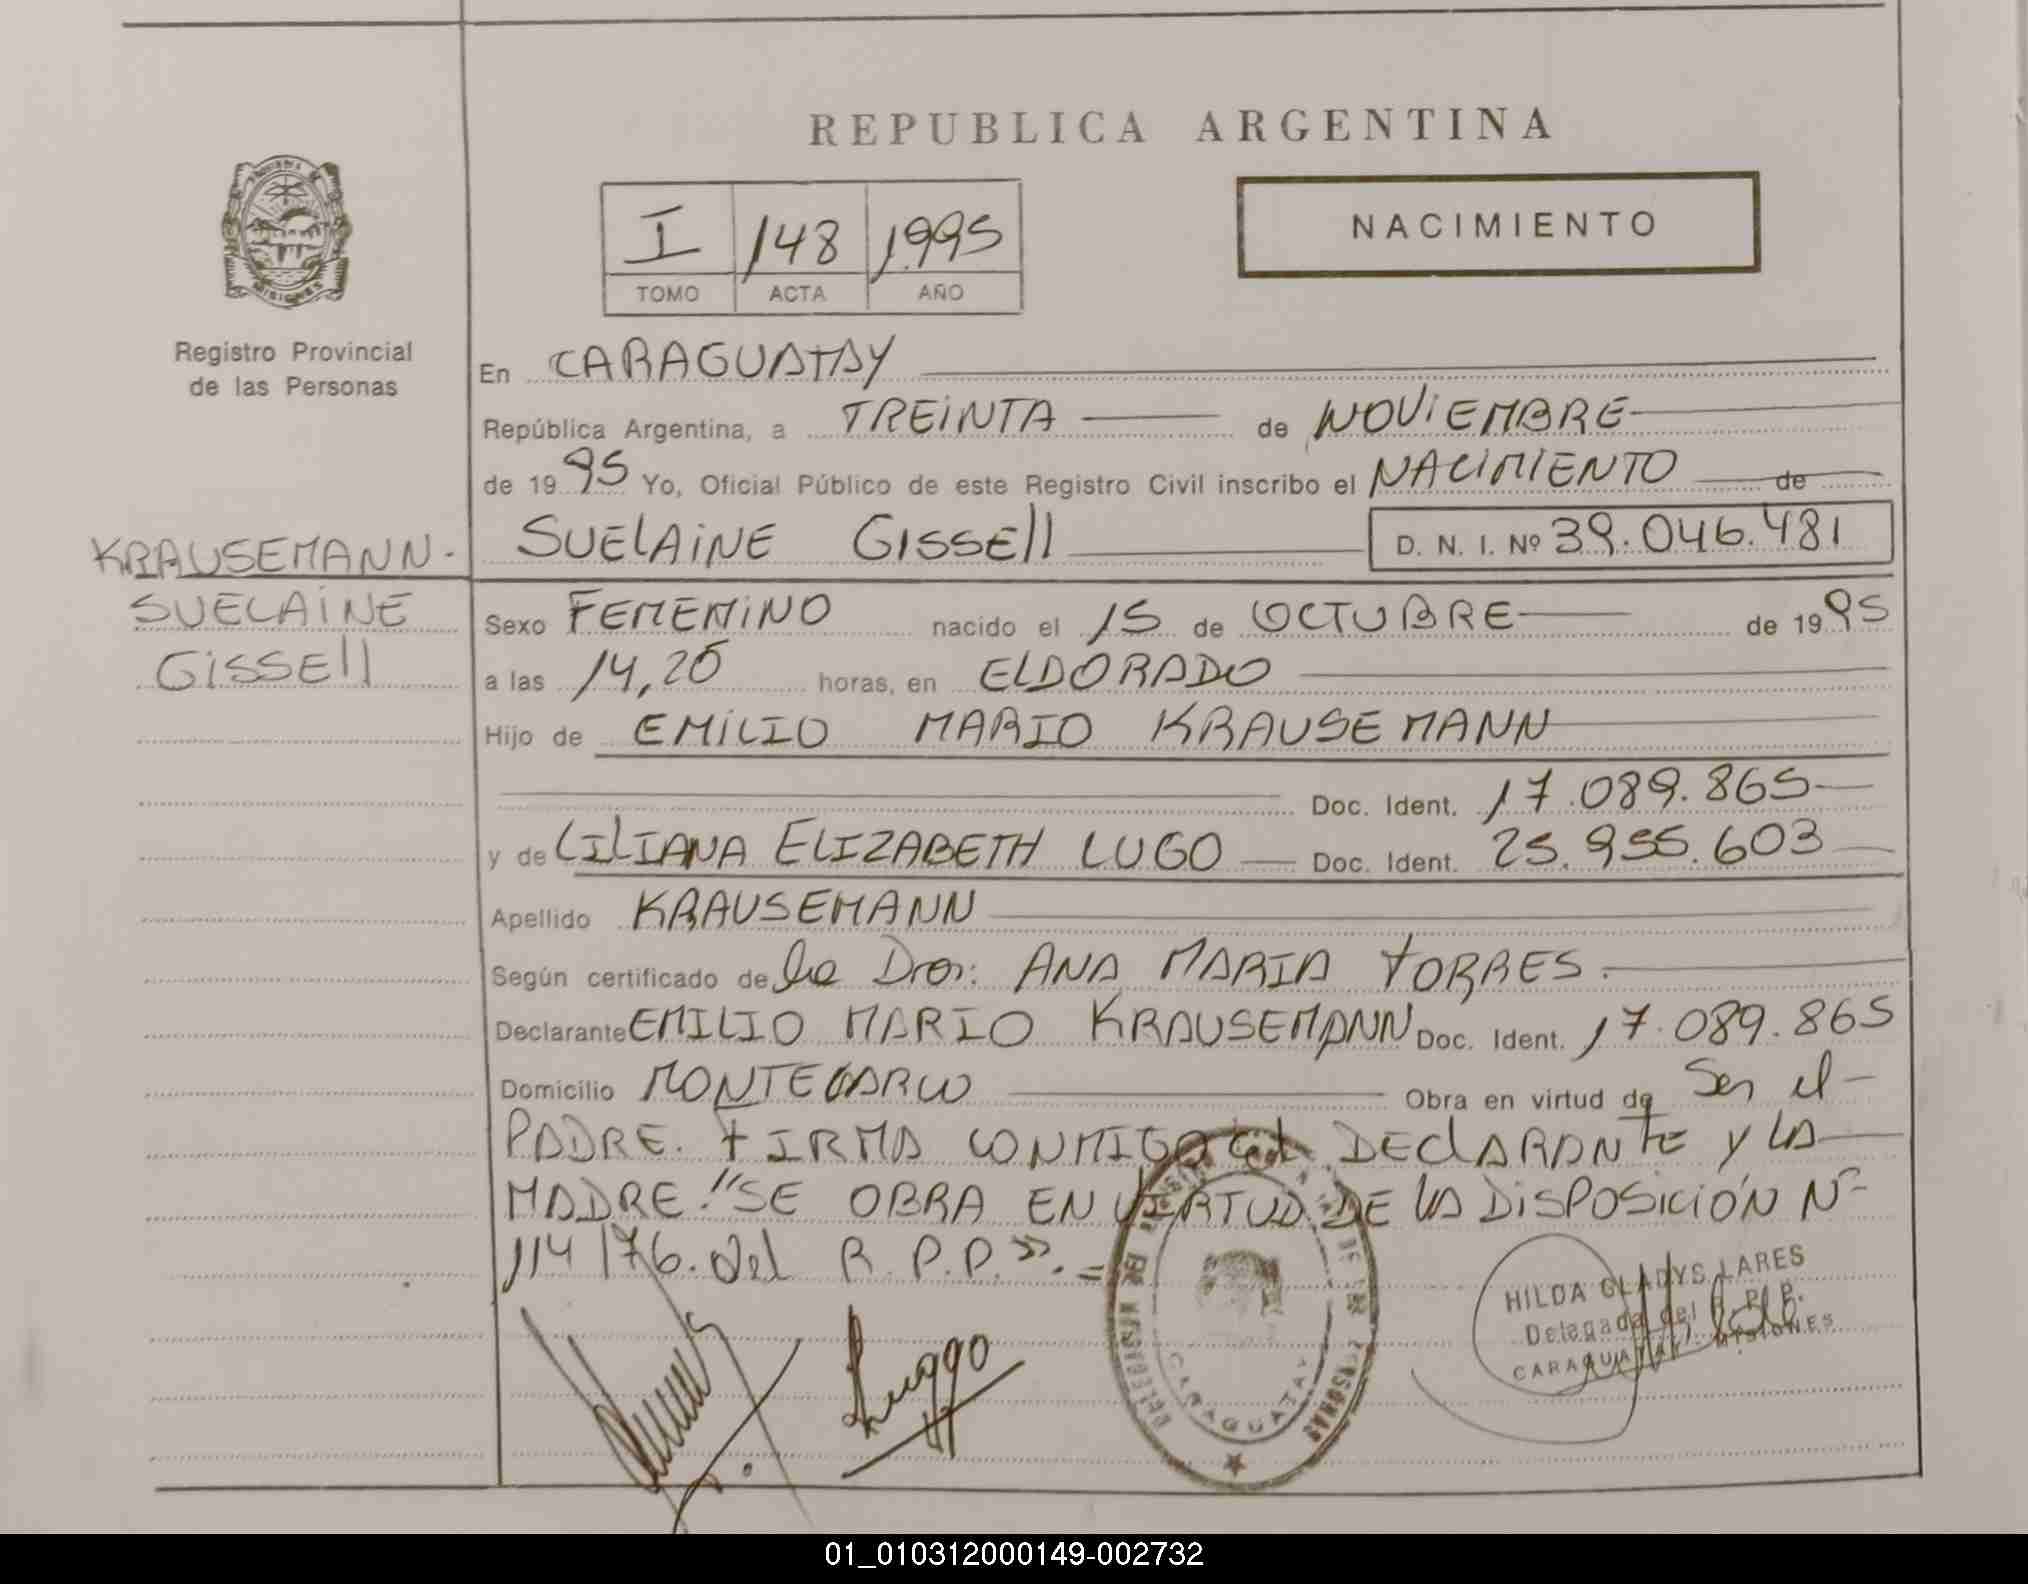 REPUBLICA ARGENTINA
NACIMIENTO
I 148 1995
TOMO ACTA AÑO
MISIONES
Registro Provincial
de las Personas
En CARAGUATAY
República Argentina, a TREINTA de NOVIEMBRE
de 1995 Yo, Oficial Público de este Registro Civil inscribo el NACIMIENTO de
SUELAINE GISSEll D. N. I. Nº 39.046.481
KRAUSEMANN.
SUELAINE
GISSEll
Sexo FEMENINO nacido el 15 de OCTUBRE de 1995
a las 14,20 horas, en ELDORADO
Hijo de EMILIO MARIO KRAUSEMANN
Doc. Ident. 17.089.865
y de LILIANA ELIZABETH LUGO Doc. Ident. 25.955.603
Apellido KRAUSEMANN
Según certificado de la Dra: ANA MARIA TORRES.
Declarante EMILIO MARIO KRAUSEMANN Doc. Ident. 17.089.865
Domicilio MONTECARLO Obra en virtud de Ser el
PADRE. FIRMA CONMIGO el DEClARANTE y LA
MADRE. "SE OBRA EN VIRTUD DE LA DISPOSICIÓN Nº
114/76. del R.P.P.". =
HILDA GLADYS LARES
Delegada del R. P. P.
CARAGUATAY. MISIONES
Luggo
CARAGUATAY
01_010312000149-002732